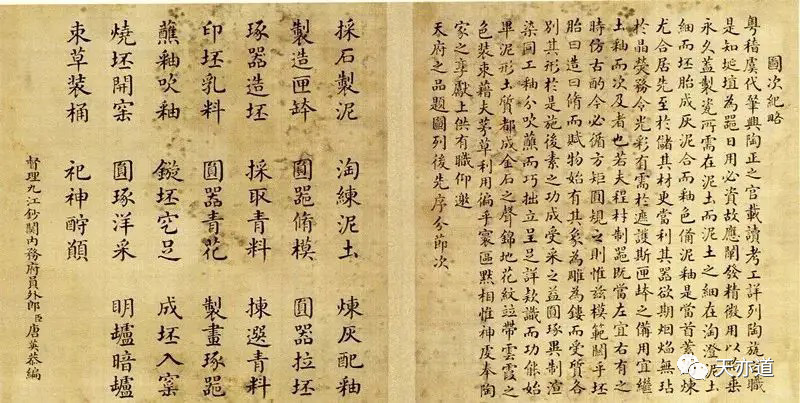 圖次紀略
粵稽虞代肇興陶正之官載讀考工詳列陶旊之職
是知埏埴為器日用必資故應闡發精微用以昭垂
永久蓋製瓷所需在泥土而泥土之細在淘澄泥土
細而坯胎成灰泥合而釉色備泥釉是當首義淘煉
尤合居先至於儲其材更當利其器欲期烟焰無玷
於晶熒務令光彩有需於遮護斯匣鉢之備用宜繼
土釉而次及者也若夫程材制器既當左宜右有之
時仿古酌今必循方矩圓規之則惟茲模範關乎坯
胎曰造曰脩而賦物始有其象為雕為鏤而受質各
別其形於是施後素之功成受采之益圓琢異制渲
染同工釉分吹蘸而巧拙立呈足詳款識而功能始
畢泥形土質都成金石之聲錦地花紋竝帶雲霞之
色裝束藉夫茅草利用徧乎寰區黙相惟神虔奉陶
家之享獻上供有職仰邀
天府之品題圖列後先序分節次
採石製泥 淘練泥土 煉灰配釉
製造匣鉢 圓器脩模 圓器拉坯
琢器造坯 採取青料 揀選青料
印坯乳料 圓器青花 製畫琢器
蘸釉吹釉 鏇坯空足 成坯入窯
燒坯開窯 圓琢洋采 明爐暗爐
束草裝桶 祀神酧願
督理九江鈔關內務府員外郎臣唐英恭編
天亦道